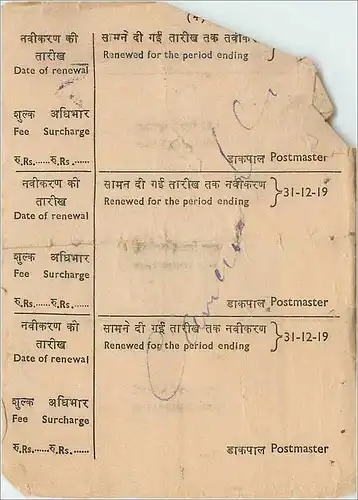 (4)
नवीकरण की
तारीख
Date of renewal
सामने दी गई तारीख तक
Renewed for the period ending
शुल्क अधिभार
Fee Surcharge
रु.Rs.......रु.Rs.......
डाकपाल Postmaster
नवीकरण की
तारीख
Date of renewal
सामन दी गई तारीख तक नवीकरण
Renewed for the period ending
}31-12-19
शुल्क अधिभार
Fee Surcharge
रु.Rs.......रु.Rs.......
डाकपाल Postmaster
नवीकरण की
तारीख
Date of renewal
सामने दी गई तारीख तक नवीकरण
Renewed for the period ending
}31-12-19
शुल्क अधिभार
Fee Surcharge
रु.Rs.......रु.Rs.......
डाकपाल Postmaster